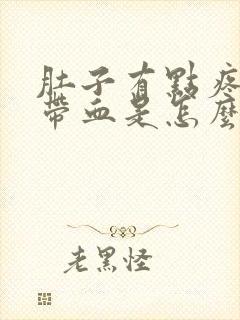 肚子有點疼
帶血是怎麼
老黑怪